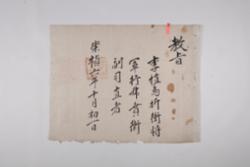 教旨
李爲折衝將
軍行賁衛
副司直者
崇禎六年十月初一日